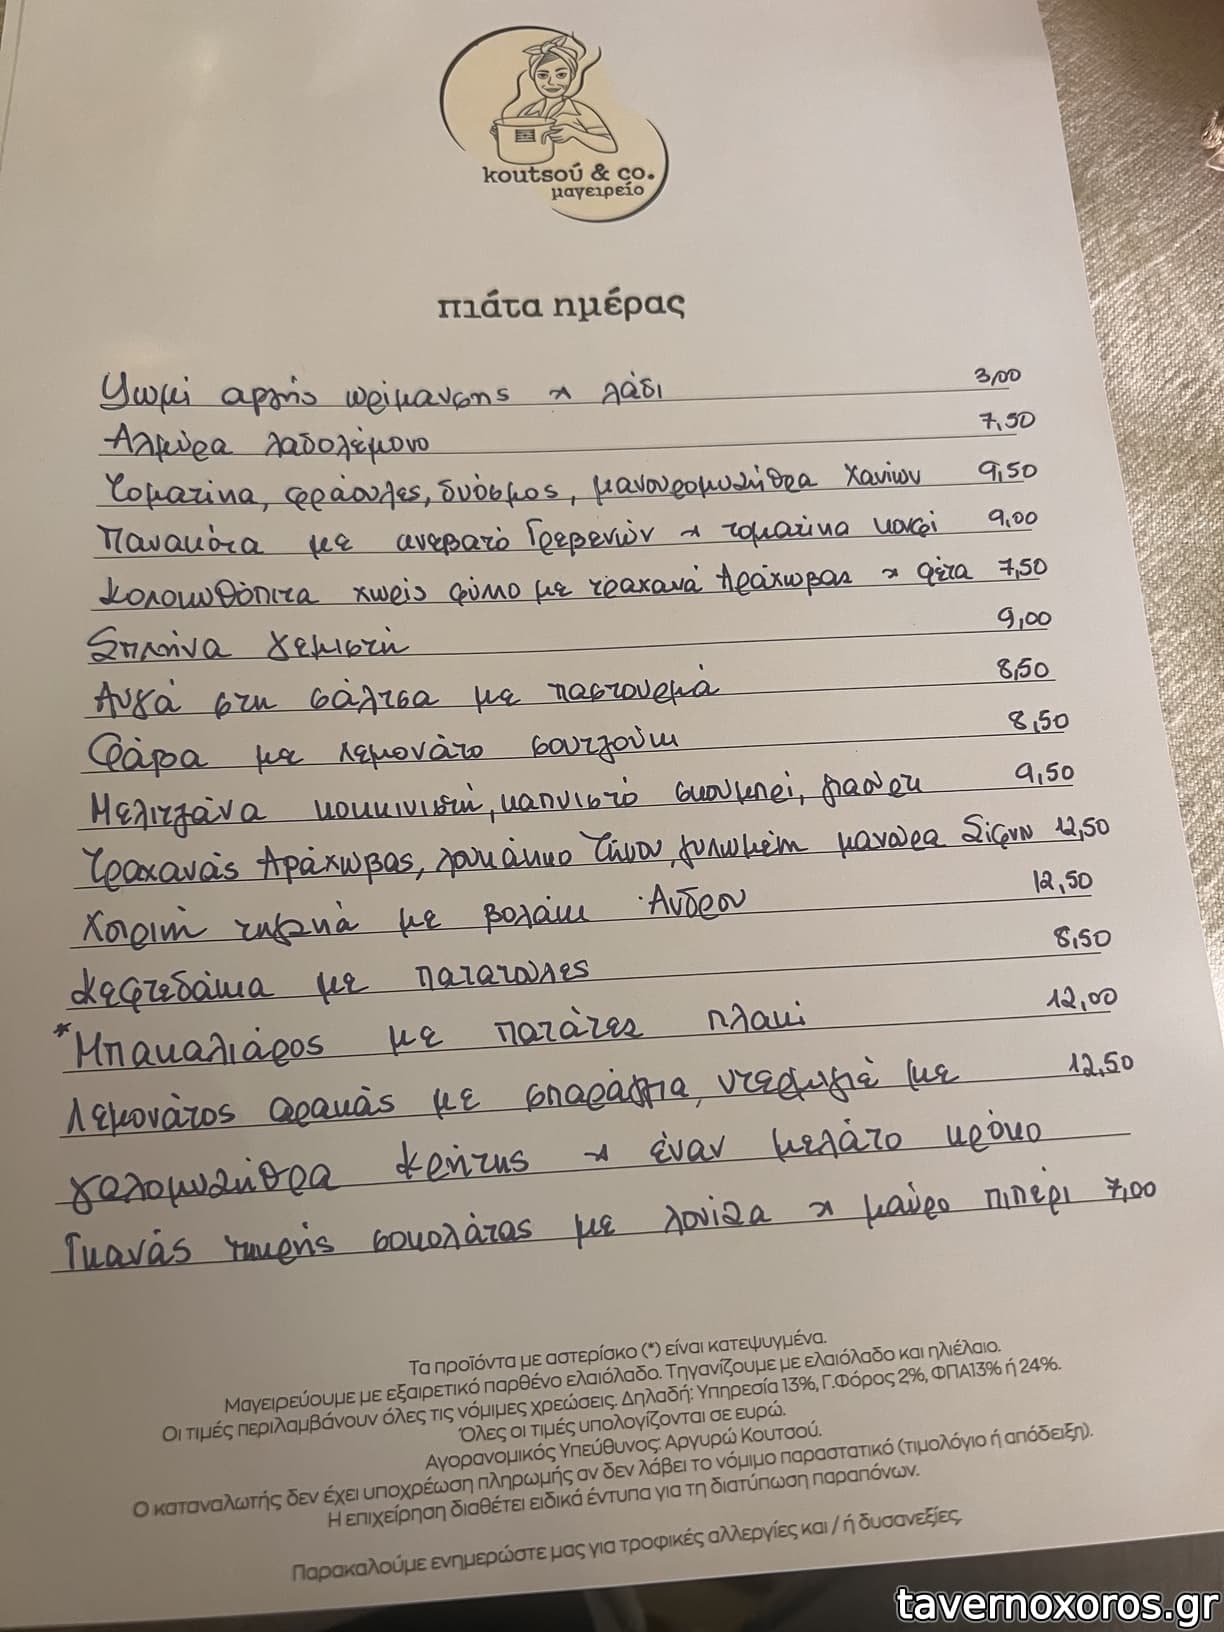 koutsoú & co.
μαγειρείο
πιάτα ημέρας
Ψωμί αργής ωρίμανσης & λάδι 3,00
Αλμύρα λαδολέμονο 7,50
Τοματίνια, φράουλες, δυόσμος, μανουρομυζήθρα Χανίων 9,50
Πανακότα με ανεβατό Γρεβενών & τοματίνια κονφί 9,00
Κολοκυθόπιτα χωρίς φύλλο με τραχανά Αράχωβας & φέτα 7,50
Σπλήνα γεμιστή 9,00
Αυγά στη σάλτσα με παστουρμά 8,50
Φάβα με λεμονάτο σουτζούκι 8,50
Μελιτζάνα κοκκινιστή, καπνιστό σκουμπρί, γιαούρτι 9,50
Τραχανάς Αράχωβας, λουκάνικο Τήνου, γυλωμένη μανούρα Σίφνου 12,50
Χοιρινή τηγανιά με βολάκι Άνδρου 12,50
Κεφτεδάκια με πατατούλες 8,50
*Μπακαλιάρος με πατάτες πλακί 12,00
Λεμονάτος αρακάς με σπαράγγια, ντερμιγιέ με 12,50
γαλομυζήθρα Κρήτης & έναν μελάτο κρόκο
Γκανάς πικρής σοκολάτας με λουίζα & μαύρο πιπέρι 7,00
Τα προϊόντα με αστερίσκο (*) είναι κατεψυγμένα.
Μαγειρεύουμε με εξαιρετικό παρθένο ελαιόλαδο. Τηγανίζουμε με ελαιόλαδο και ηλιέλαιο.
Οι τιμές περιλαμβάνουν όλες τις νόμιμες χρεώσεις. Δηλαδή: Υπηρεσία 13%, Γ.Φόρος 2%, ΦΠΑ13% ή 24%.
Όλες οι τιμές υπολογίζονται σε ευρώ.
Αγορανομικός Υπεύθυνος: Αργυρώ Κουτσού.
Ο καταναλωτής δεν έχει υποχρέωση πληρωμής αν δεν λάβει το νόμιμο παραστατικό (τιμολόγιο ή απόδειξη).
Η επιχείρηση διαθέτει ειδικά έντυπα για τη διατύπωση παραπόνων.
Παρακαλούμε ενημερώστε μας για τροφικές αλλεργίες και / ή δυσανεξίες.
tavernoxoros.gr